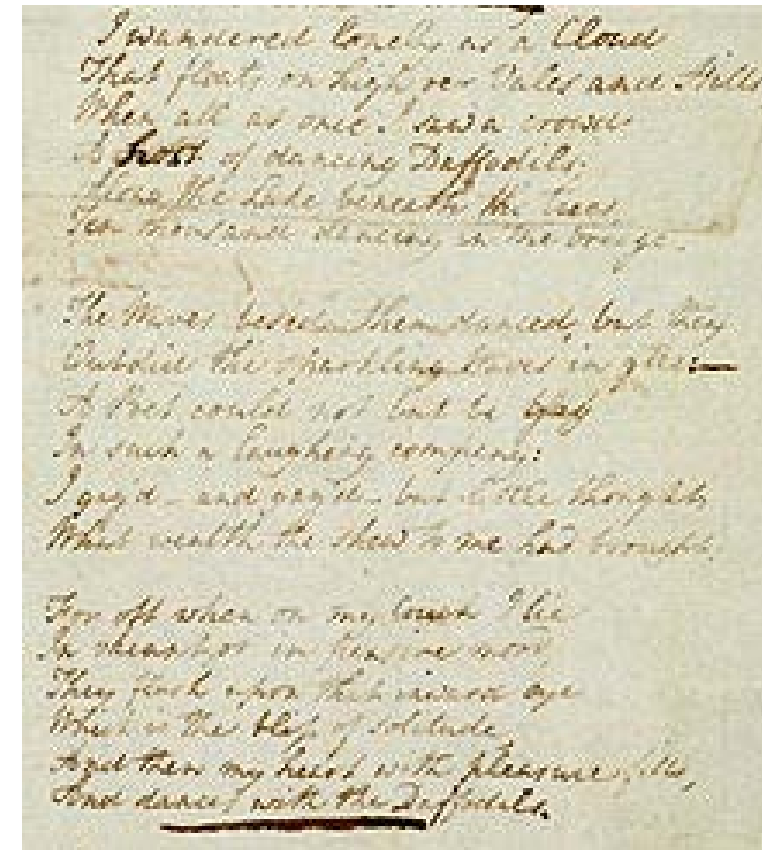 I wandered lonely as a Cloud
That floats on high o'er Vales and Hills
When all at once I saw a crowd
A host of dancing Daffodils;
Along the Lake, beneath the trees,
Ten thousand dancing in the breeze.
The Waves beside them danced, but they
Outdid the sparkling Waves in glee:—
A Poet could not but be gay
In such a laughing company:
I gaz'd – and gaz'd – but little thought
What wealth the shew to me had brought:
For oft when on my couch I lie
In vacant or in pensive mood,
They flash upon that inward eye
Which is the bliss of solitude,
And then my heart with pleasure fills,
And dances with the Daffodils.